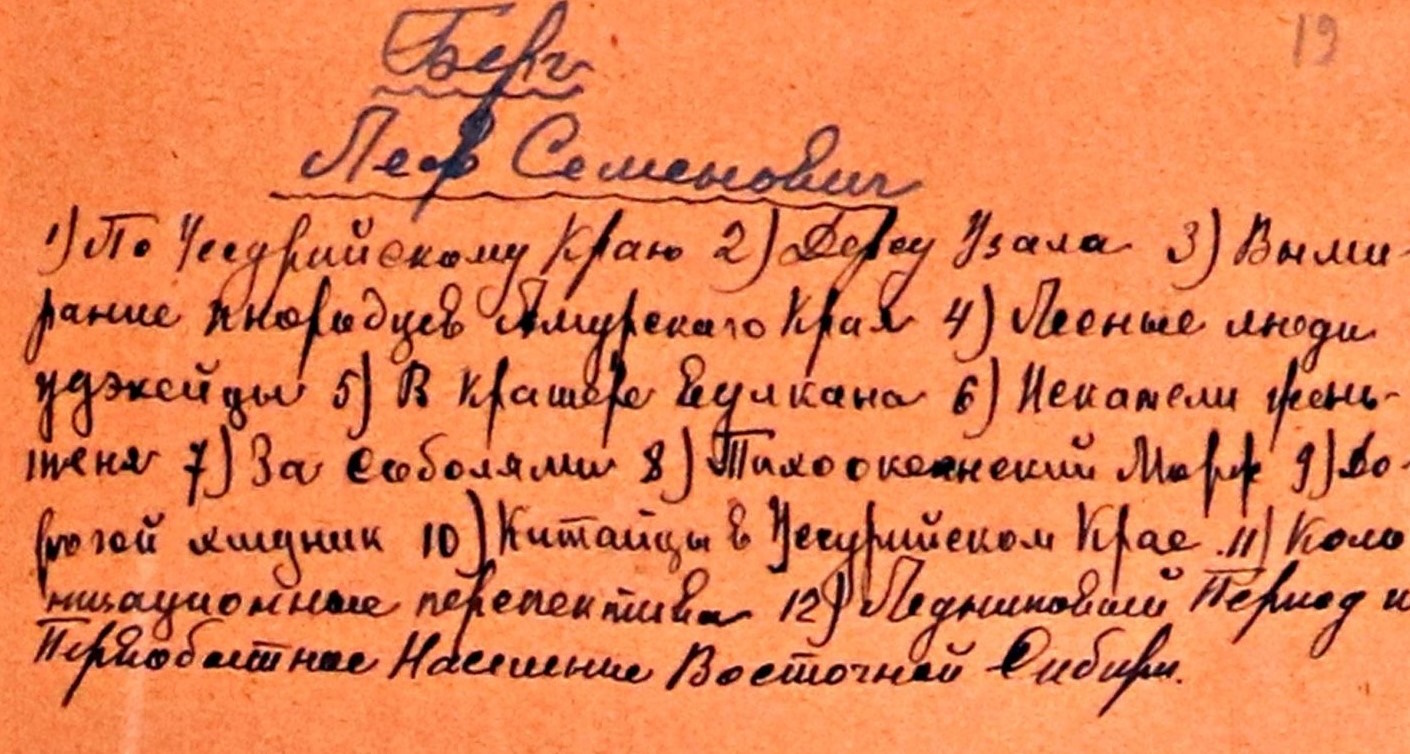 19
Берг
Лев Семенович
1) По Уссурийскому Краю 2) Дерсу Узала 3) Выми-
рание инородцев Амурскаго Края 4) Лесные люди
удэхейцы 5) В Кратере Вулкана 6) Искатели жень-
шеня 7) За Соболями 8) Тихоокеанский Морж 9) До-
рогой хищник 10) Китайцы в Уссурийском Крае 11) Коло
низационные перспектива 12) Ледниковый Период и
Первобытное Население Восточной Сибири.